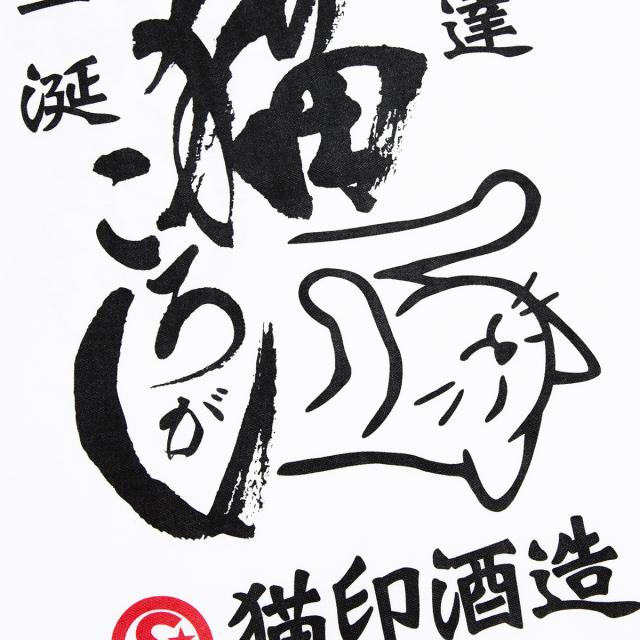 達
猫ころがし
涎
猫印酒造